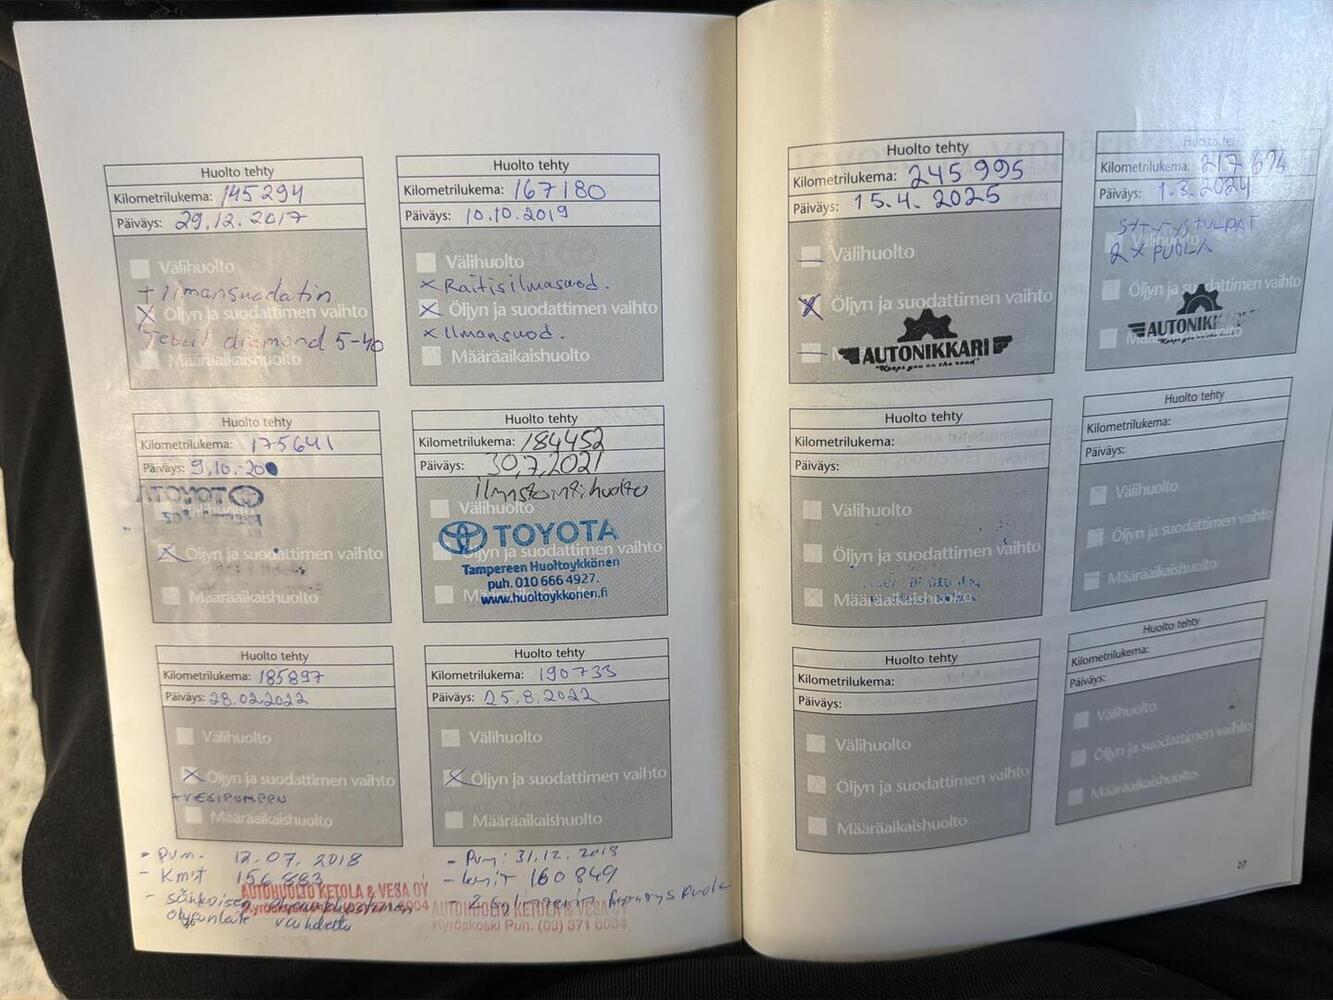 Huolto tehty
Kilometrilukema: 145 294
Päiväys: 29.12.2017
Välihuolto
+ Ilmansuodatin
Öljyn ja suodattimen vaihto
5-40
Määräaikaishuolto
Huolto tehty
Kilometrilukema: 167180
Päiväys: 10.10.2019
Välihuolto
x Raitisilmasuod.
Öljyn ja suodattimen vaihto
x Ilmansuod.
Määräaikaishuolto
Huolto tehty
Kilometrilukema: 175641
Päiväys: 9.10.20
TOYOTA
Välihuolto
Öljyn ja suodattimen vaihto
Määräaikaishuolto
Huolto tehty
Kilometrilukema: 184452
Päiväys: 30.7.2021
ilmastointihuolto
Välihuolto
TOYOTA
Öljyn ja suodattimen vaihto
Tampereen Huoltoykkönen
puh. 010 666 4927.
Määräaikaishuolto
www.huoltoykkonen.fi
Huolto tehty
Kilometrilukema: 185897
Päiväys: 28.02.2022
Välihuolto
Öljyn ja suodattimen vaihto
+VESIPUMPPU
Määräaikaishuolto
Huolto tehty
Kilometrilukema: 190733
Päiväys: 25.8.2022
Välihuolto
Öljyn ja suodattimen vaihto
Määräaikaishuolto
- Pvm. 12.07.2018
- Km:t 156 883
AUTOHUOLTO KETOLA & VESA OY
vaihdettu
- Pvm: 31.12.2018
- km:t 160 849
AUTOHUOLTO KETOLA & VESA OY
Kyröskoski Puh. (03) 371 6004
Huolto tehty
Kilometrilukema: 245 995
Päiväys: 15.4.2025
Välihuolto
Öljyn ja suodattimen vaihto
AUTONIKKARI
"Keeps you on the road"
Huolto tehty
Kilometrilukema: 217 694
Päiväys: 1.3.2024
SYTYTYSTULPAT
2 x PUOLA
Öljyn ja suodattimen vaihto
AUTONIKKARI
Huolto tehty
Kilometrilukema:
Päiväys:
Välihuolto
Öljyn ja suodattimen vaihto
Määräaikaishuolto
Huolto tehty
Kilometrilukema:
Päiväys:
Välihuolto
Öljyn ja suodattimen vaihto
Määräaikaishuolto
Huolto tehty
Kilometrilukema:
Päiväys:
Välihuolto
Öljyn ja suodattimen vaihto
Määräaikaishuolto
Huolto tehty
Kilometrilukema:
Päiväys:
Välihuolto
Öljyn ja suodattimen vaihto
Määräaikaishuolto